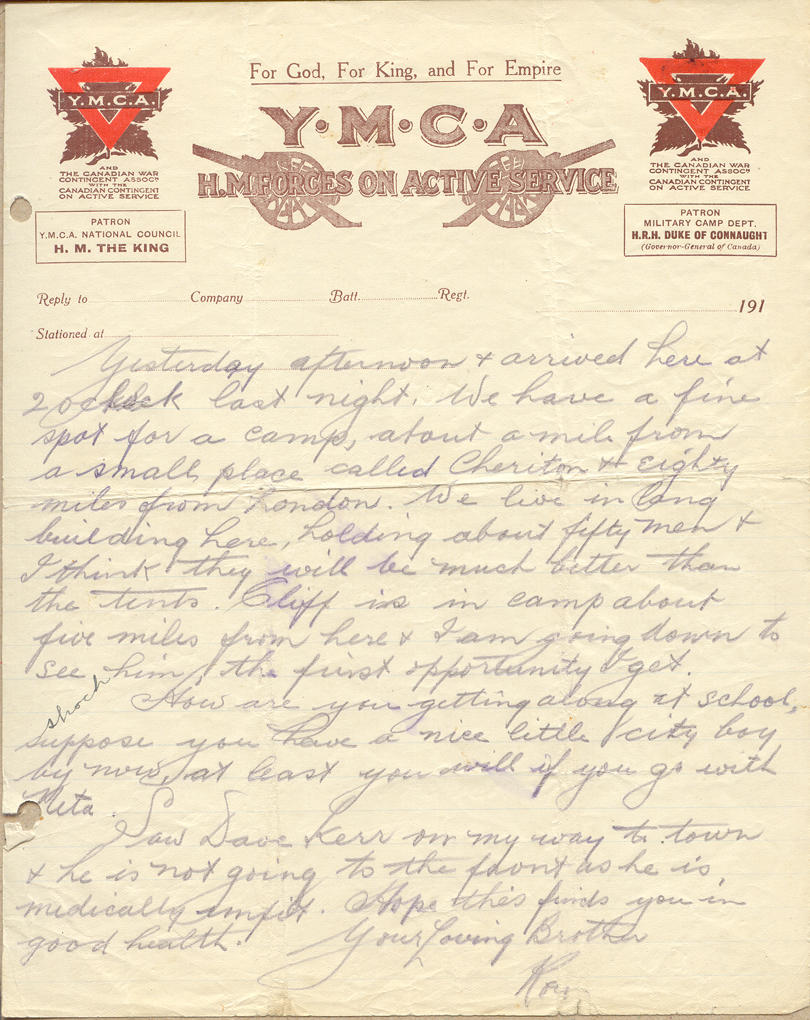 For God, For King, and For Empire
Y·M·C·A
H.M. FORCES ON ACTIVE SERVICE
Y.M.C.A.
AND
THE CANADIAN WAR
CONTINGENT ASSOCN
WITH THE
CANADIAN CONTINGENT
ON ACTIVE SERVICE
PATRON
Y.M.C.A. NATIONAL COUNCIL
H. M. THE KING
Y.M.C.A.
AND
THE CANADIAN WAR
CONTINGENT ASSOCN
WITH THE
CANADIAN CONTINGENT
ON ACTIVE SERVICE
PATRON
MILITARY CAMP DEPT.
H.R.H. DUKE OF CONNAUGHT
(Governor-General of Canada)
Reply to Company Batt. Regt.
191
Stationed at
Yesterday afternoon & arrived here at
2 oclock last night. We have a fine
spot for a camp, about a mile from
a small place called Cheriton & eighty
miles from London. We live in long
building here, holding about fifty men &
I think they will be much better than
the tents. Cliff is in camp about
five miles from here & I am going down to
see him, the first opportunity I get.
How are you getting along at school,
suppose you have a nice little city boy
by now, at least you will if you go with
Neta.
Saw Dave Kerr on my way to town
& he is not going to the front as he is
medically unfit. Hope this finds you in
good health. Your Loving Brother
Roy